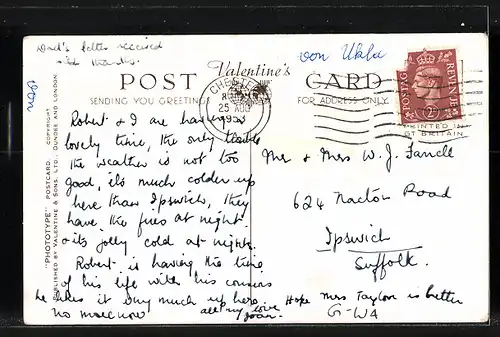 Dad's letter received
with thanks.
von Ukla
POST Valentine's CARD
SENDING YOU GREETINGS
FOR ADDRESS ONLY
CHESTER
25 AUG
195
POSTAGE REVENUE
2½
PRINTED IN
GT BRITAIN
"PHOTOTYPE" POSTCARD. COPYRIGHT.
PUBLISHED BY VALENTINE & SONS, LTD., DUNDEE AND LONDON.
Robert & I are having a
lovely time, the only trouble
the weather is not too
good, it's much colder up
here than Ipswich, they
have the fires at night
its jolly cold at nights.
Robert is having the time
of his life with his cousins
he likes it very much up here.
no more now
all my love
Joan.
Mr & Mrs W. J.
624 Nacton Road
Ipswich
Suffolk.
Hope Mrs Taylor is better
G-W4